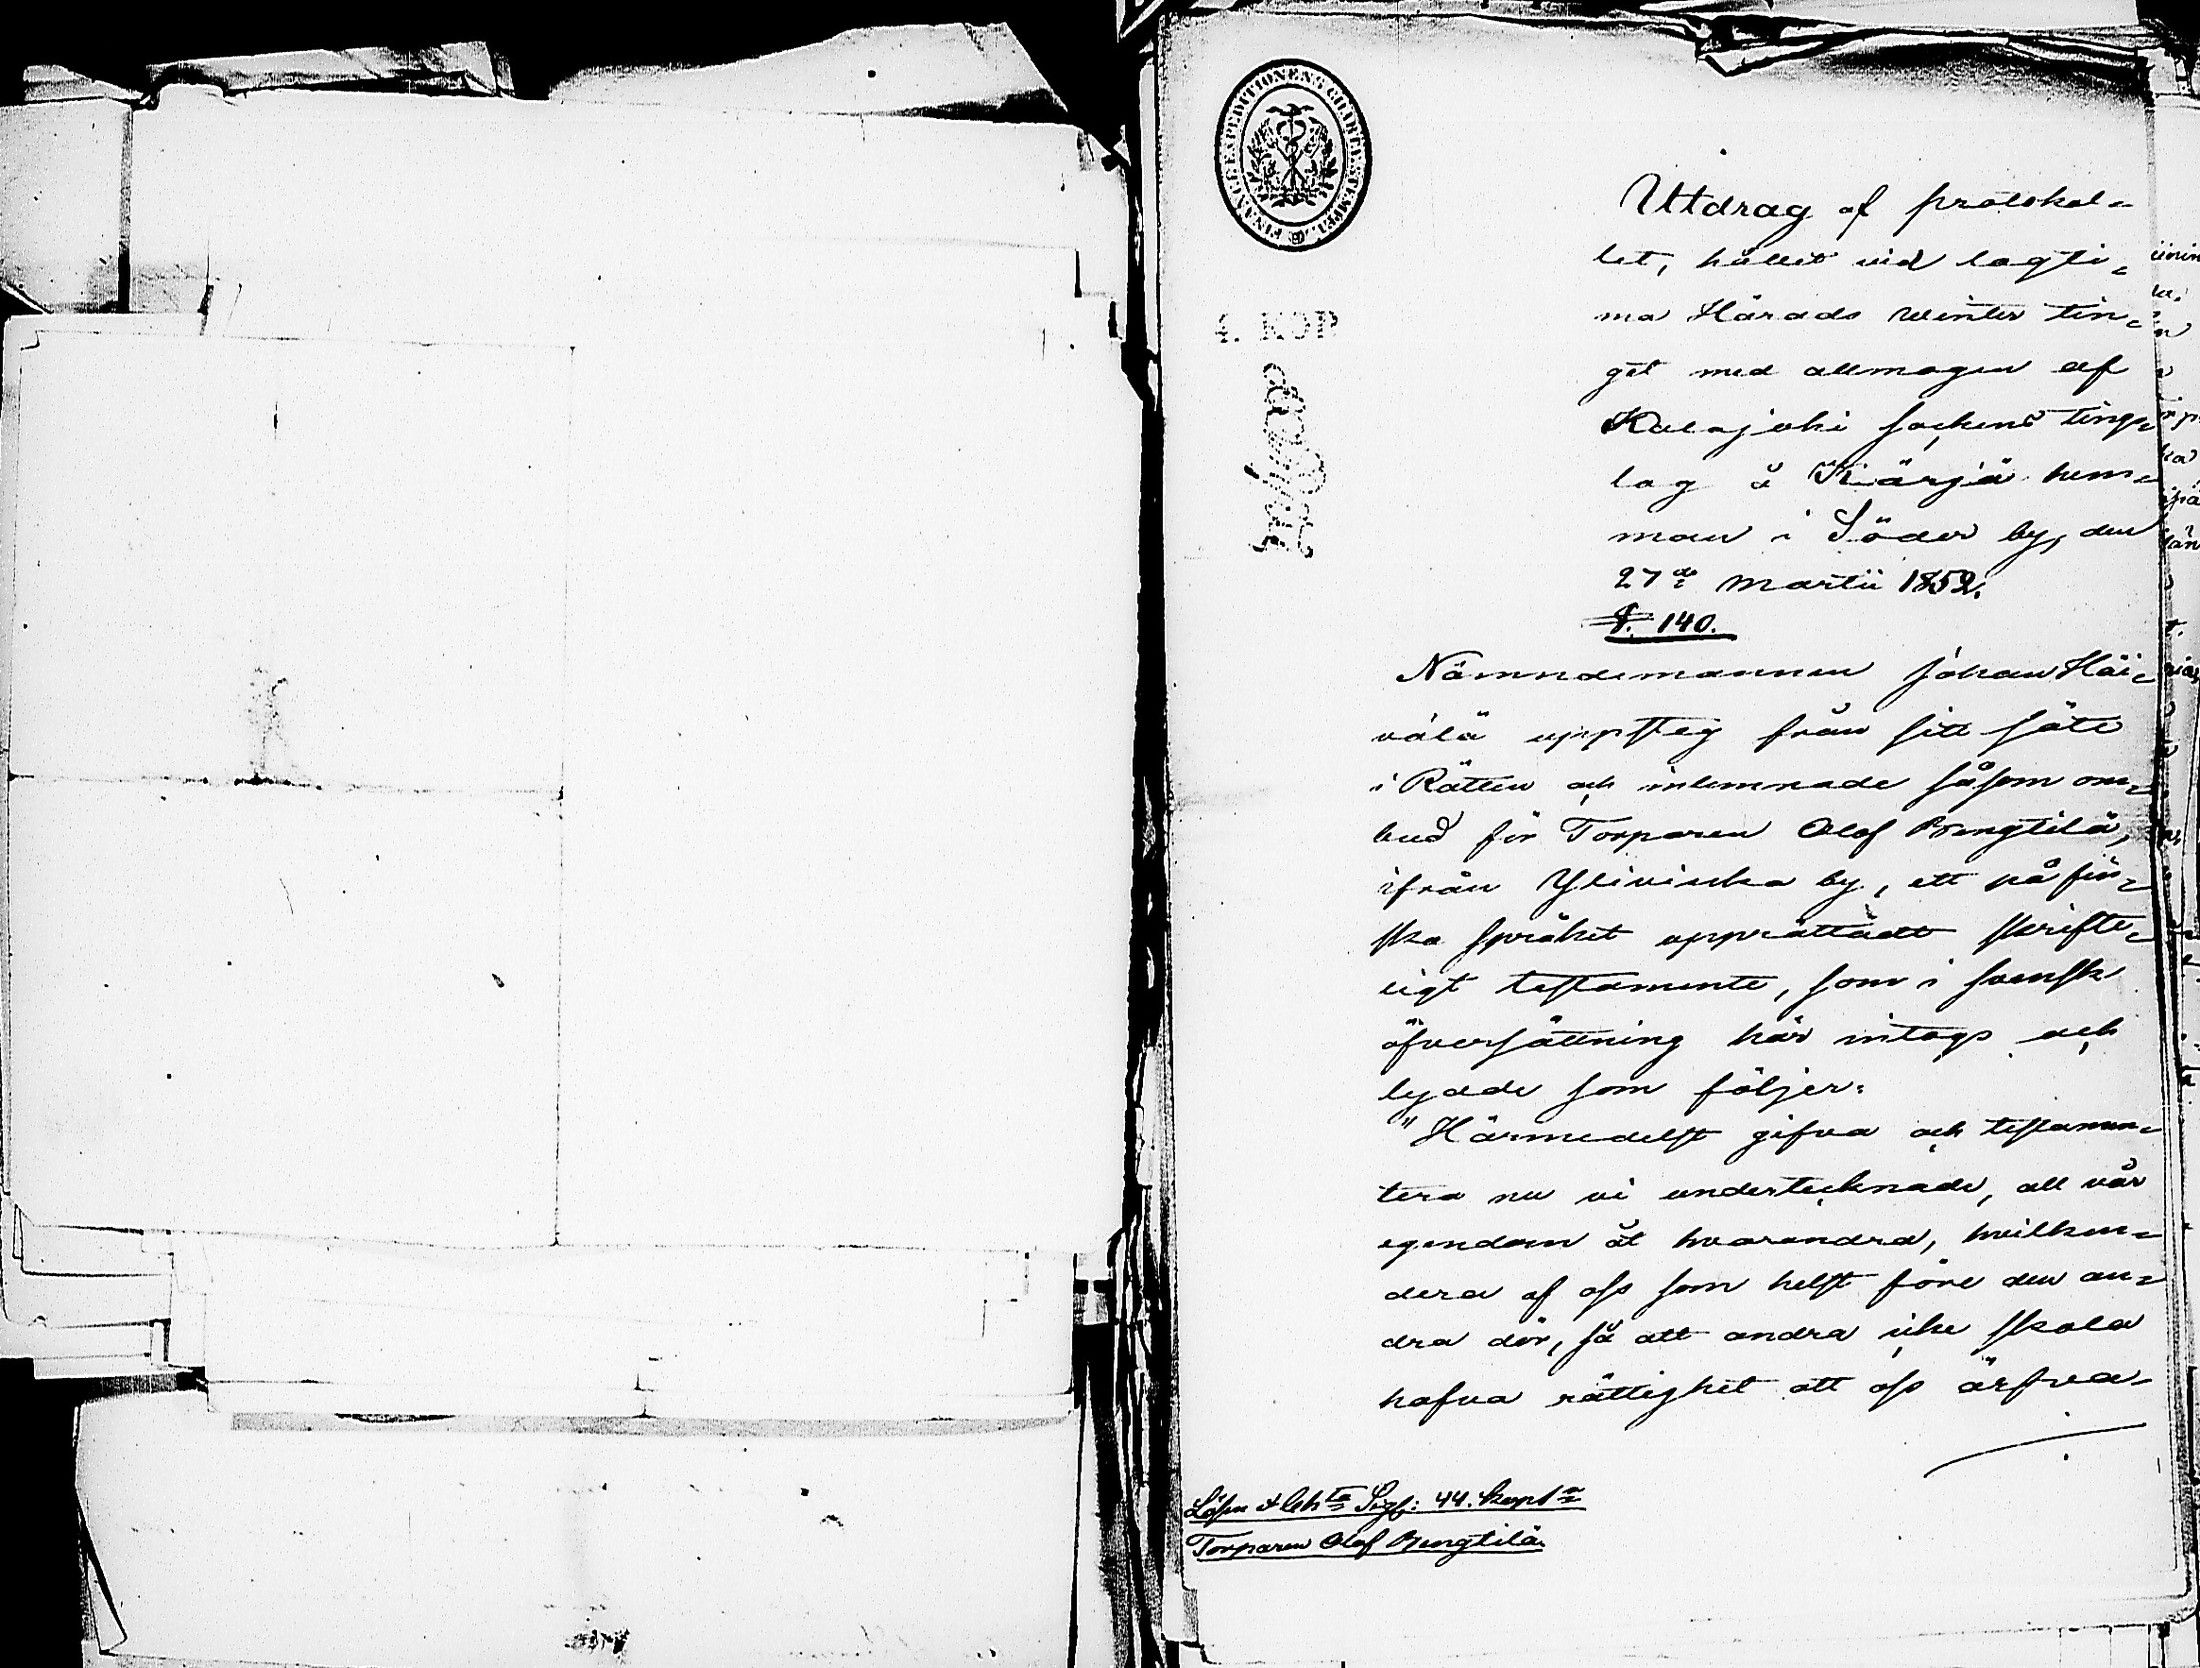 FINANCE EXPEDITIONENS CHARTÆ STEMPEL.
4. KOP
Utdrag af protokol=
let, hållet vid lagti=
ma Härads Winter tin=
get med allmogen af
Kalajoki sockens tings=
lag å Kärjä hem=
man i Söder by, den
27de Martii 1852.
§. 140.
Nämndemannen Johan Häi=
välä uppsteg från sitt säte
i Rätten och inlemnade såsom om=
bud för Torparen Olof Bengtilä,
ifrån Ylivieska by, ett på fin=
ska språket upprättadt skrifte=
ligt testamente, som i svensk
öfversättning här intogs och
lydde som följer:
"Härmedelst gifva och testamen=
tera nu vi undertecknade, all vår
egendom åt hvarandra, hvilken=
dera af oss som helst före den an=
dra dör, så att andra icke skola
hafva rättighet att oss ärfva
Lösen & Ch:ta Sigf: 44. kop S:r
Torparen Olof Bengtilä.